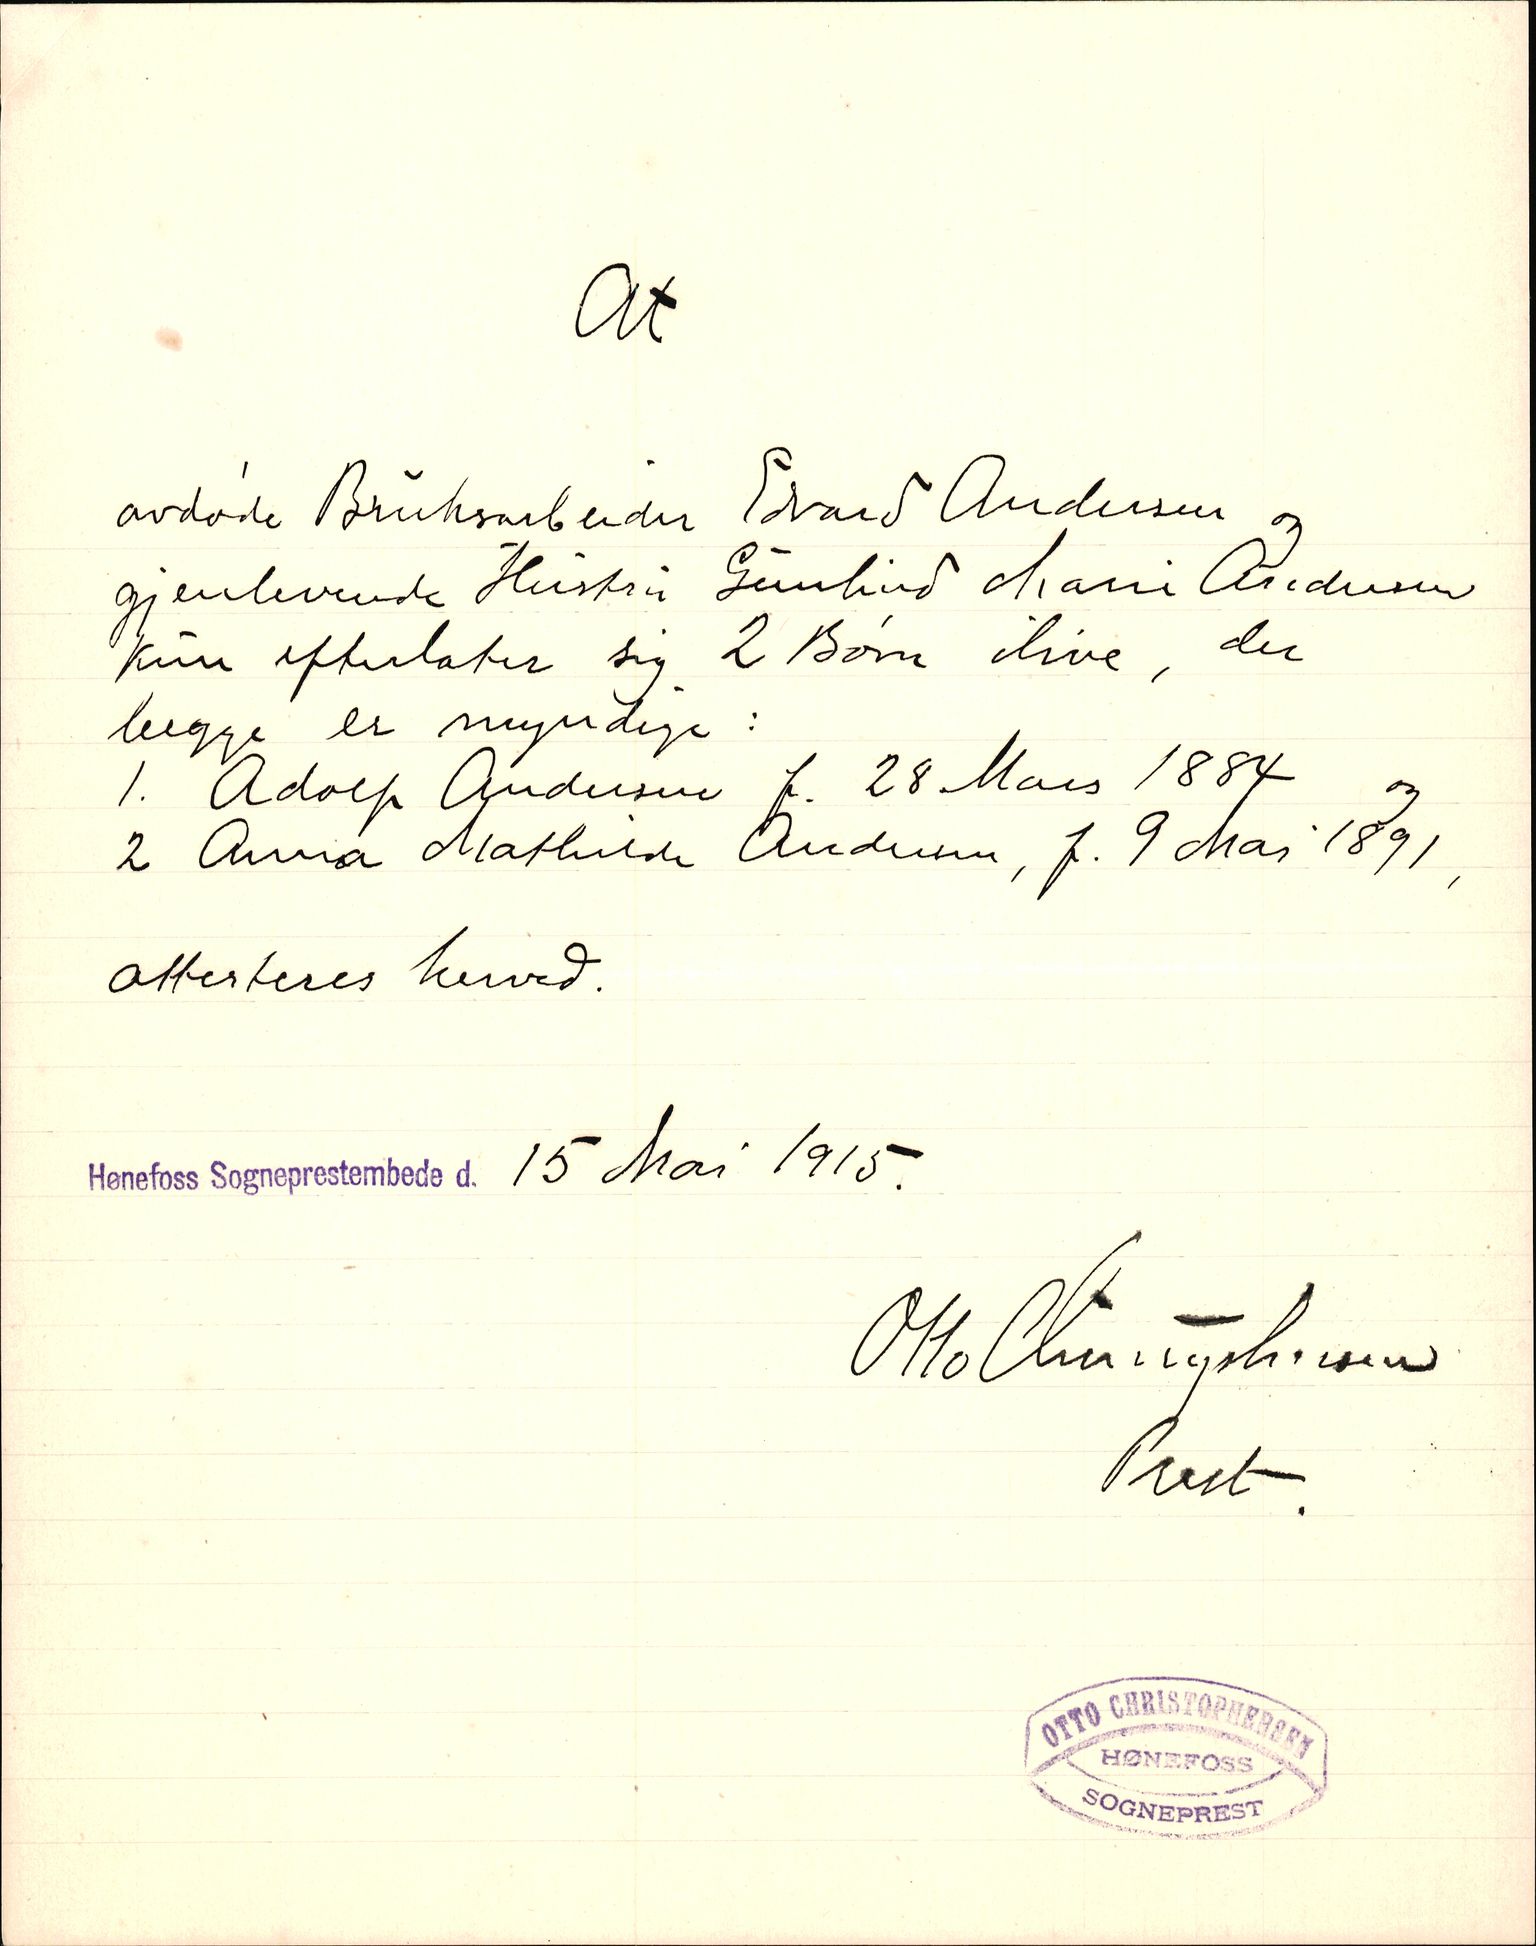 At
avdøde Bruksarbeider Edvard Andersen og
gjenlevende Hustru Gunhild Marie Andersen
kun efterlater sig 2 Børn ilive, der
begge er myndige:
1. Adolf Andersen f. 28 Mars 1884 og
2 Anna Mathilde Andersen, f. 9 Mai 1891,
attesteres herved.
Hønefoss Sogneprestembede d. 15 Mai 1915.
Otto Christophersen
Prest.
OTTO CHRISTOPHERSEN
HØNEFOSS
SOGNEPREST